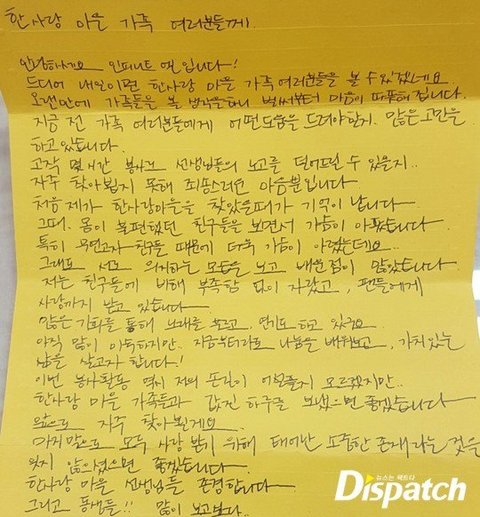 한사랑 마을 가족 여러분들께.
안녕하세요 인피니트 엘입니다!
드디어 내일이면 한사랑 마을 가족여러분들을 볼 수 있겠네요.
오랜만에 가족들을 볼 생각을하니 벌써부터 마음이 따뜻해집니다.
지금 전 가족 여러분들에게 어떤도움을 드려야할지. 많은 고민을
하고있습니다.
고작 몇시간 봉사로 선생님들의 노고를 덜어드릴 수 있을지..
자주 찾아뵙지 못해 죄송스러운 마음뿐입니다
처음 제가 한사랑마을을 찾았을때가 기억이 납니다
그때. 몸이 불편했던 친구들을 보면서 가슴이 아팠습니다
특히 무연고자 친구들 때문에 더욱 가슴이 아렸는데요..
그래도 서로 의지하는 모습을 보고 배운 점이 많았습니다
저는 친구들에 비해 부족함 없이 자랐고, 팬들에게
사랑까지 받고 있습니다
많은 기회를 통해 노래를 부르고. 연기도 하고 있어요.
아직 많이 미숙하지만. 지금부터라도 나눔을 배워보고. 가치있는
삶을 살고자 합니다!
이번 봉사활동 역시 저의 손길이 어설플지 모르겠지만..
한사랑 마을 가족들과 값진 하루를 보냈으면 좋겠습니다
앞으로 자주 찾아뵐게요
마지막으로 모두 사랑 받기 위해 태어난 소중한 존재라는 것을
잊지 않으셨으면 좋겠습니다.
한사랑 마을 선생님들 존경합니다
그리고 동생들!! 많이 보고싶다..
뉴스는 팩트다
Dispatch